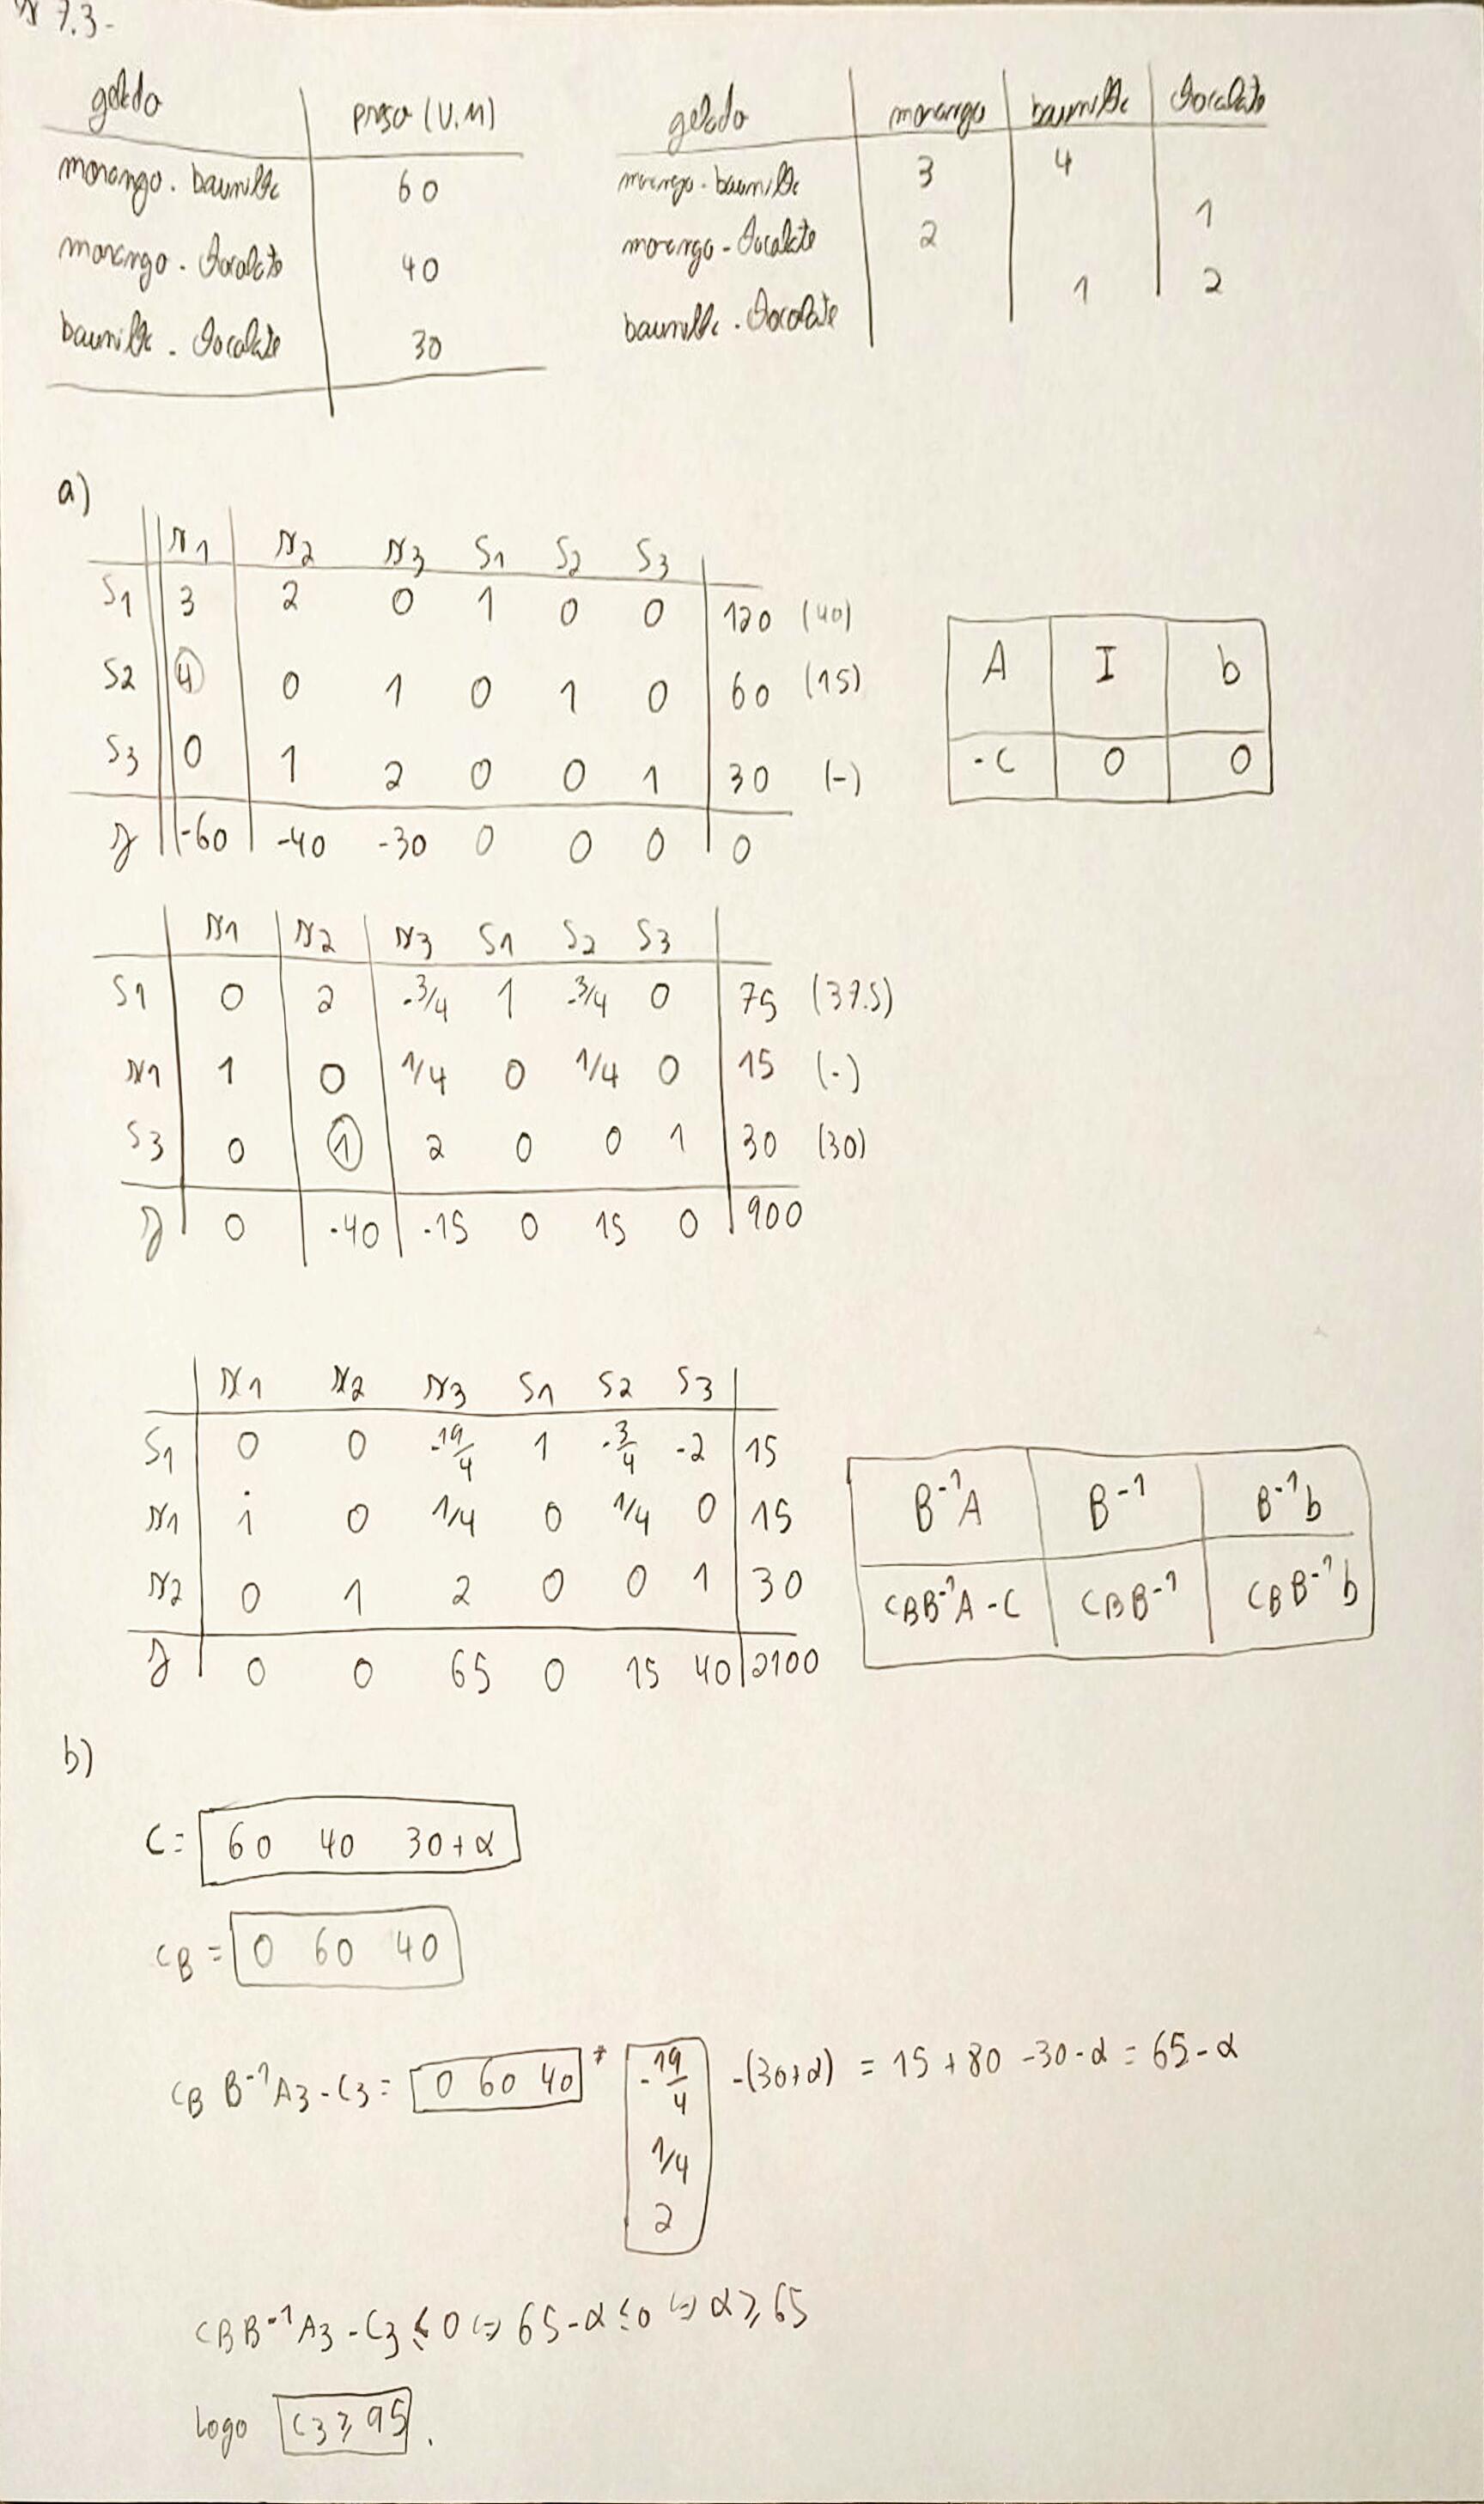 7.3-
gelado | preço (U.M)
morango. baunilha | 60
morango. chocolate | 40
baunilha. chocolate | 30
gelado | morango | baunilha | chocolate
morango. baunilha | 3 | 4
morango - chocolate | 2 | | 1
baunilha. chocolate | | 1 | 2
a)
x1 x2 x3 S1 S2 S3
S1 3 2 0 1 0 0 120 (40)
S2 4 0 1 0 1 0 60 (15)
S3 0 1 2 0 0 1 30 (-)
z -60 -40 -30 0 0 0 0
A I b
-C 0 0
x1 x2 x3 S1 S2 S3
S1 0 2 -3/4 1 -3/4 0 75 (37.5)
x1 1 0 1/4 0 1/4 0 15 (-)
S3 0 1 2 0 0 1 30 (30)
z 0 -40 -15 0 15 0 900
x1 x2 x3 S1 S2 S3
S1 0 0 -19/4 1 -3/4 -2 15
x1 1 0 1/4 0 1/4 0 15
x2 0 1 2 0 0 1 30
z 0 0 65 0 15 40 2100
B⁻¹A B⁻¹ B⁻¹b
CBB⁻¹A-C CBB⁻¹ CBB⁻¹b
b)
C= 60 40 30+α
CB = 0 60 40
CB B⁻¹A3-C3 = 0 60 40 * -19/4 1/4 2 -(30+α) = 15+80-30-α = 65-α
CBB⁻¹A3-C3 ≤ 0 ⇔ 65-α ≤ 0 ⇔ α ≥ 65
logo C3 ≥ 95.